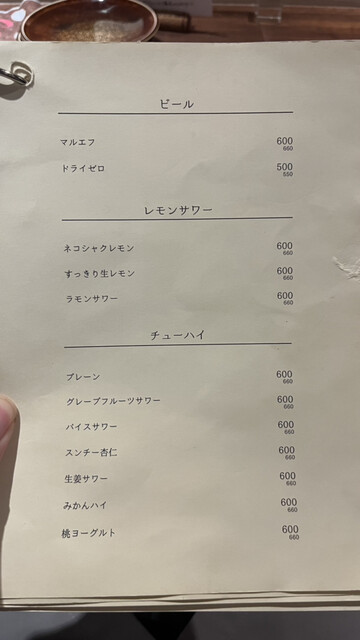 ビール
マルエフ 600
660
ドライゼロ 500
550
レモンサワー
ネコシャクレモン 600
660
すっきり生レモン 600
660
ラモンサワー 600
660
チューハイ
プレーン 600
660
グレープフルーツサワー 600
660
バイスサワー 600
660
スンチー杏仁 600
660
生姜サワー 600
660
みかんハイ 600
660
桃ヨーグルト 600
660